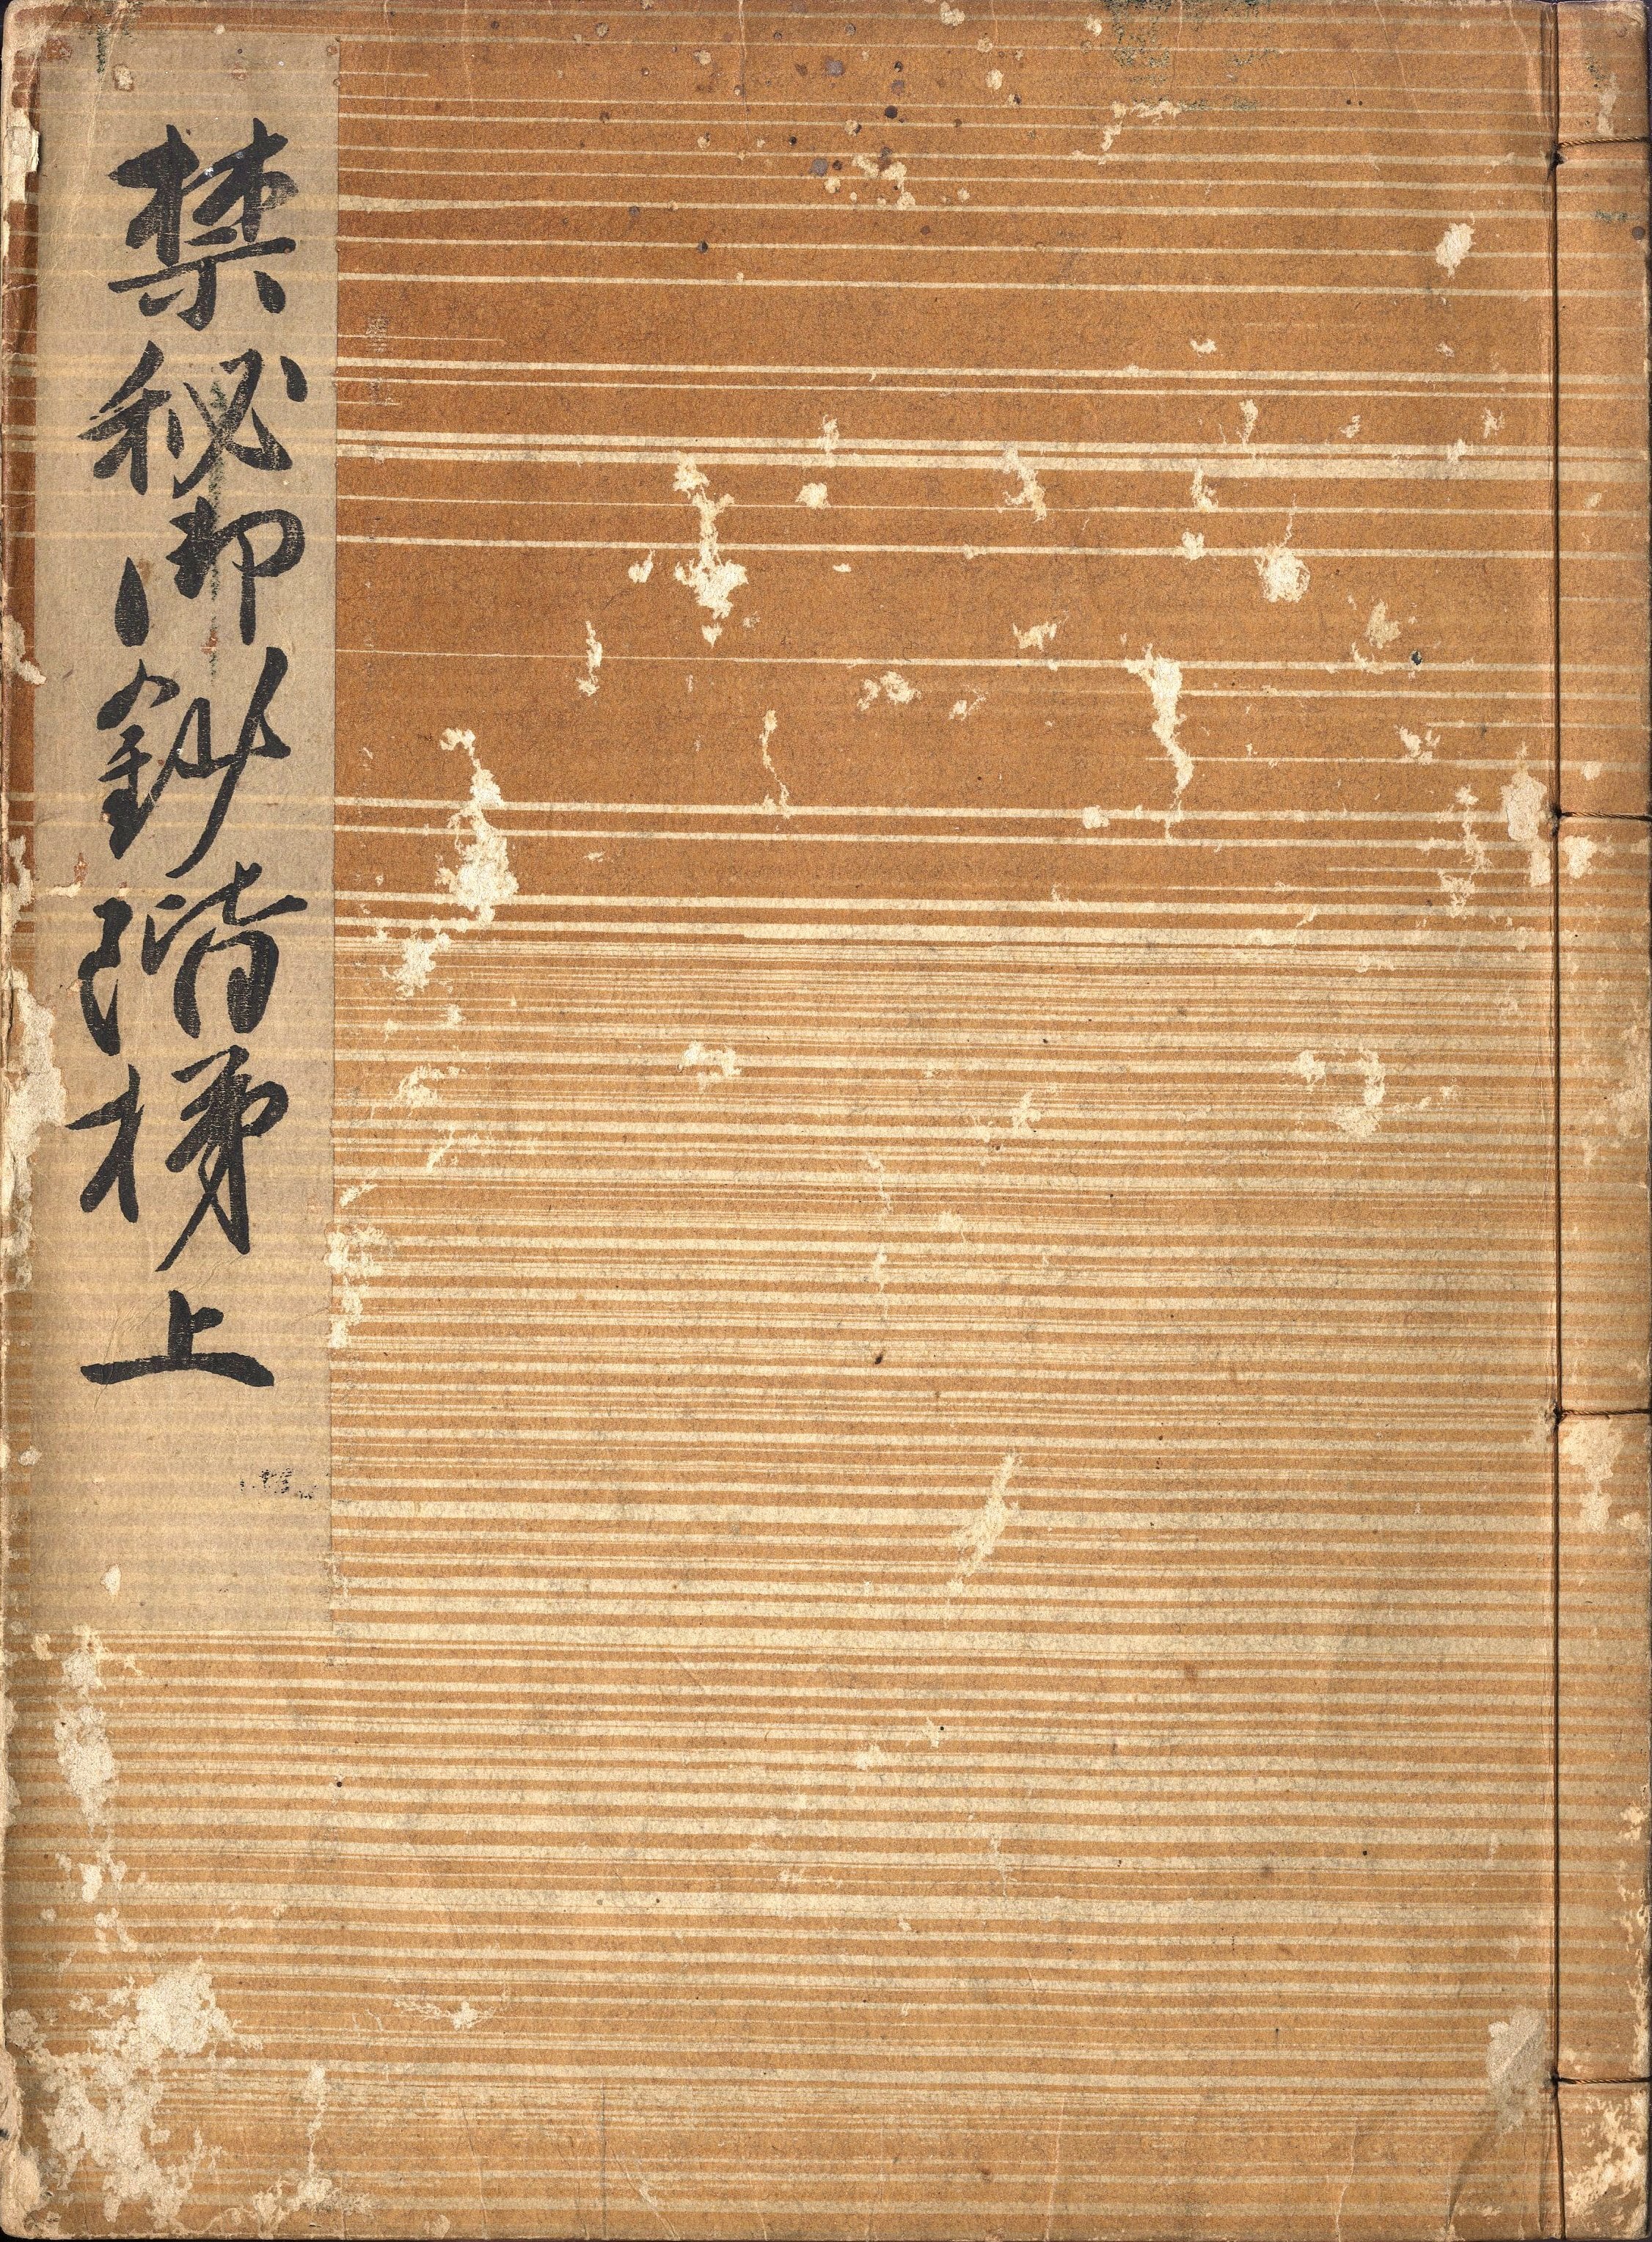 禁秘御鈔階梯上